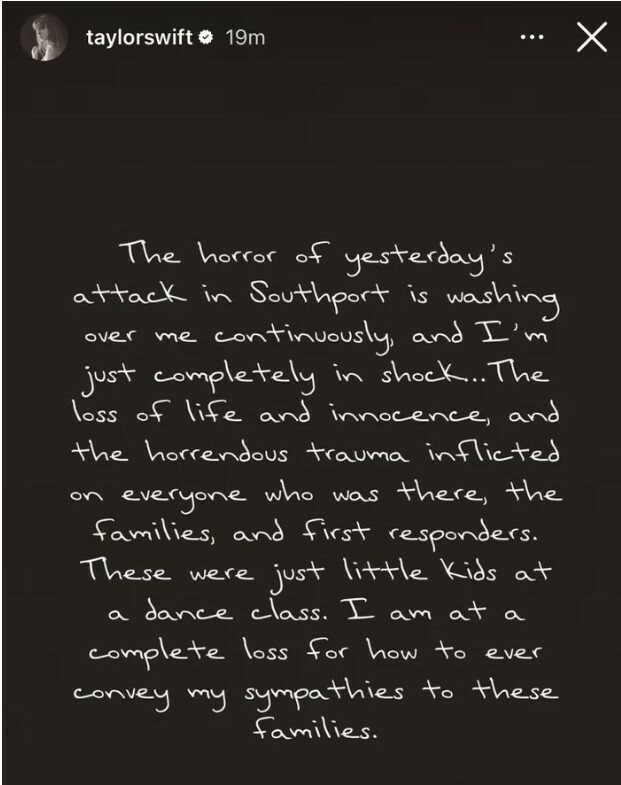 taylorswift 19m
The horror of yesterday's
attack in Southport is washing
over me continuously, and I'm
just completely in shock...The
loss of life and innocence, and
the horrendous trauma inflicted
on everyone who was there, the
families, and first responders.
These were just little kids at
a dance class. I am at a
complete loss for how to ever
convey my sympathies to these
families.